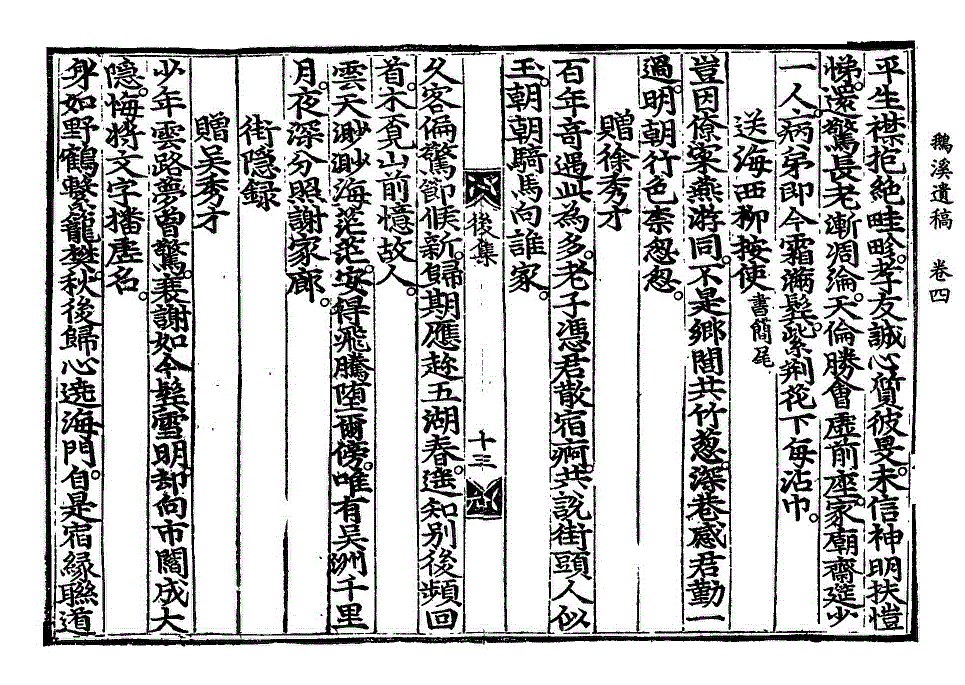 鵝溪遺稿 卷四
平生襟抱絶畦畛。孝友誠心質彼旻。未信神明扶愷
悌。還驚長老漸凋淪。天倫勝會虛前座。家廟齋筵少
一人。病弟即今霜滿鬂。紫荊花下每沾巾。
送海西柳按使 書簡尾
豈因僚寀燕游同。不是鄉閭共竹葱。深巷感君勤一
過。明朝行色柰怱怱。
贈徐秀才
百年奇遇此爲多。老子憑君散宿痾。共說街頭人似
玉。朝朝騎馬向誰家。
後集 十三
久客偏驚節候新。歸期應趁五湖春。遥知別後頻回
首。木覓山前憶故人。
雲天渺渺海茫茫。安得飛騰墮爾傍。唯有吴洲千里
月。夜深分照謝家廊。
街隱録
贈吴秀才
少年雲路夢曾驚。衰謝如今鬂雪明。却向市闤成大
隱。悔將文字播虛名。
身如野鶴繫籠樊。秋後歸心遶海門。自是宿緣聯道